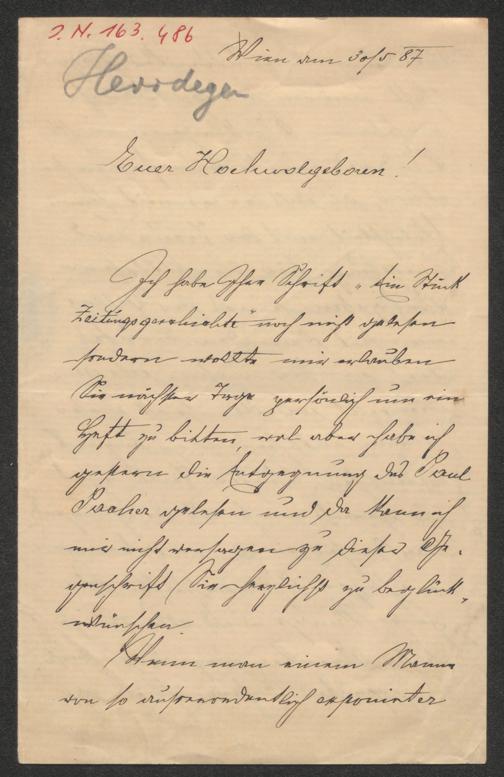 J. N. 163. 486
Wien am 30/5 87
Herrdegen
Euer Hochwolgeboren!
Ich habe Ihre Schrift „Ein Stück
Zeitungsgeschichte" noch nicht gelesen
sondern wollte mir erlauben
Sie nächster Tage persönlich um ein
Heft zu bitten, wol aber habe ich
gestern die Entgegnung des Paul
Pacher gelesen und da kann ich
mir nicht versagen zu dieser Ge-
genschrift Sie herzlichst zu beglück-
wünschen.
Wenn man einem Manne
von so außerordentlich exponirter